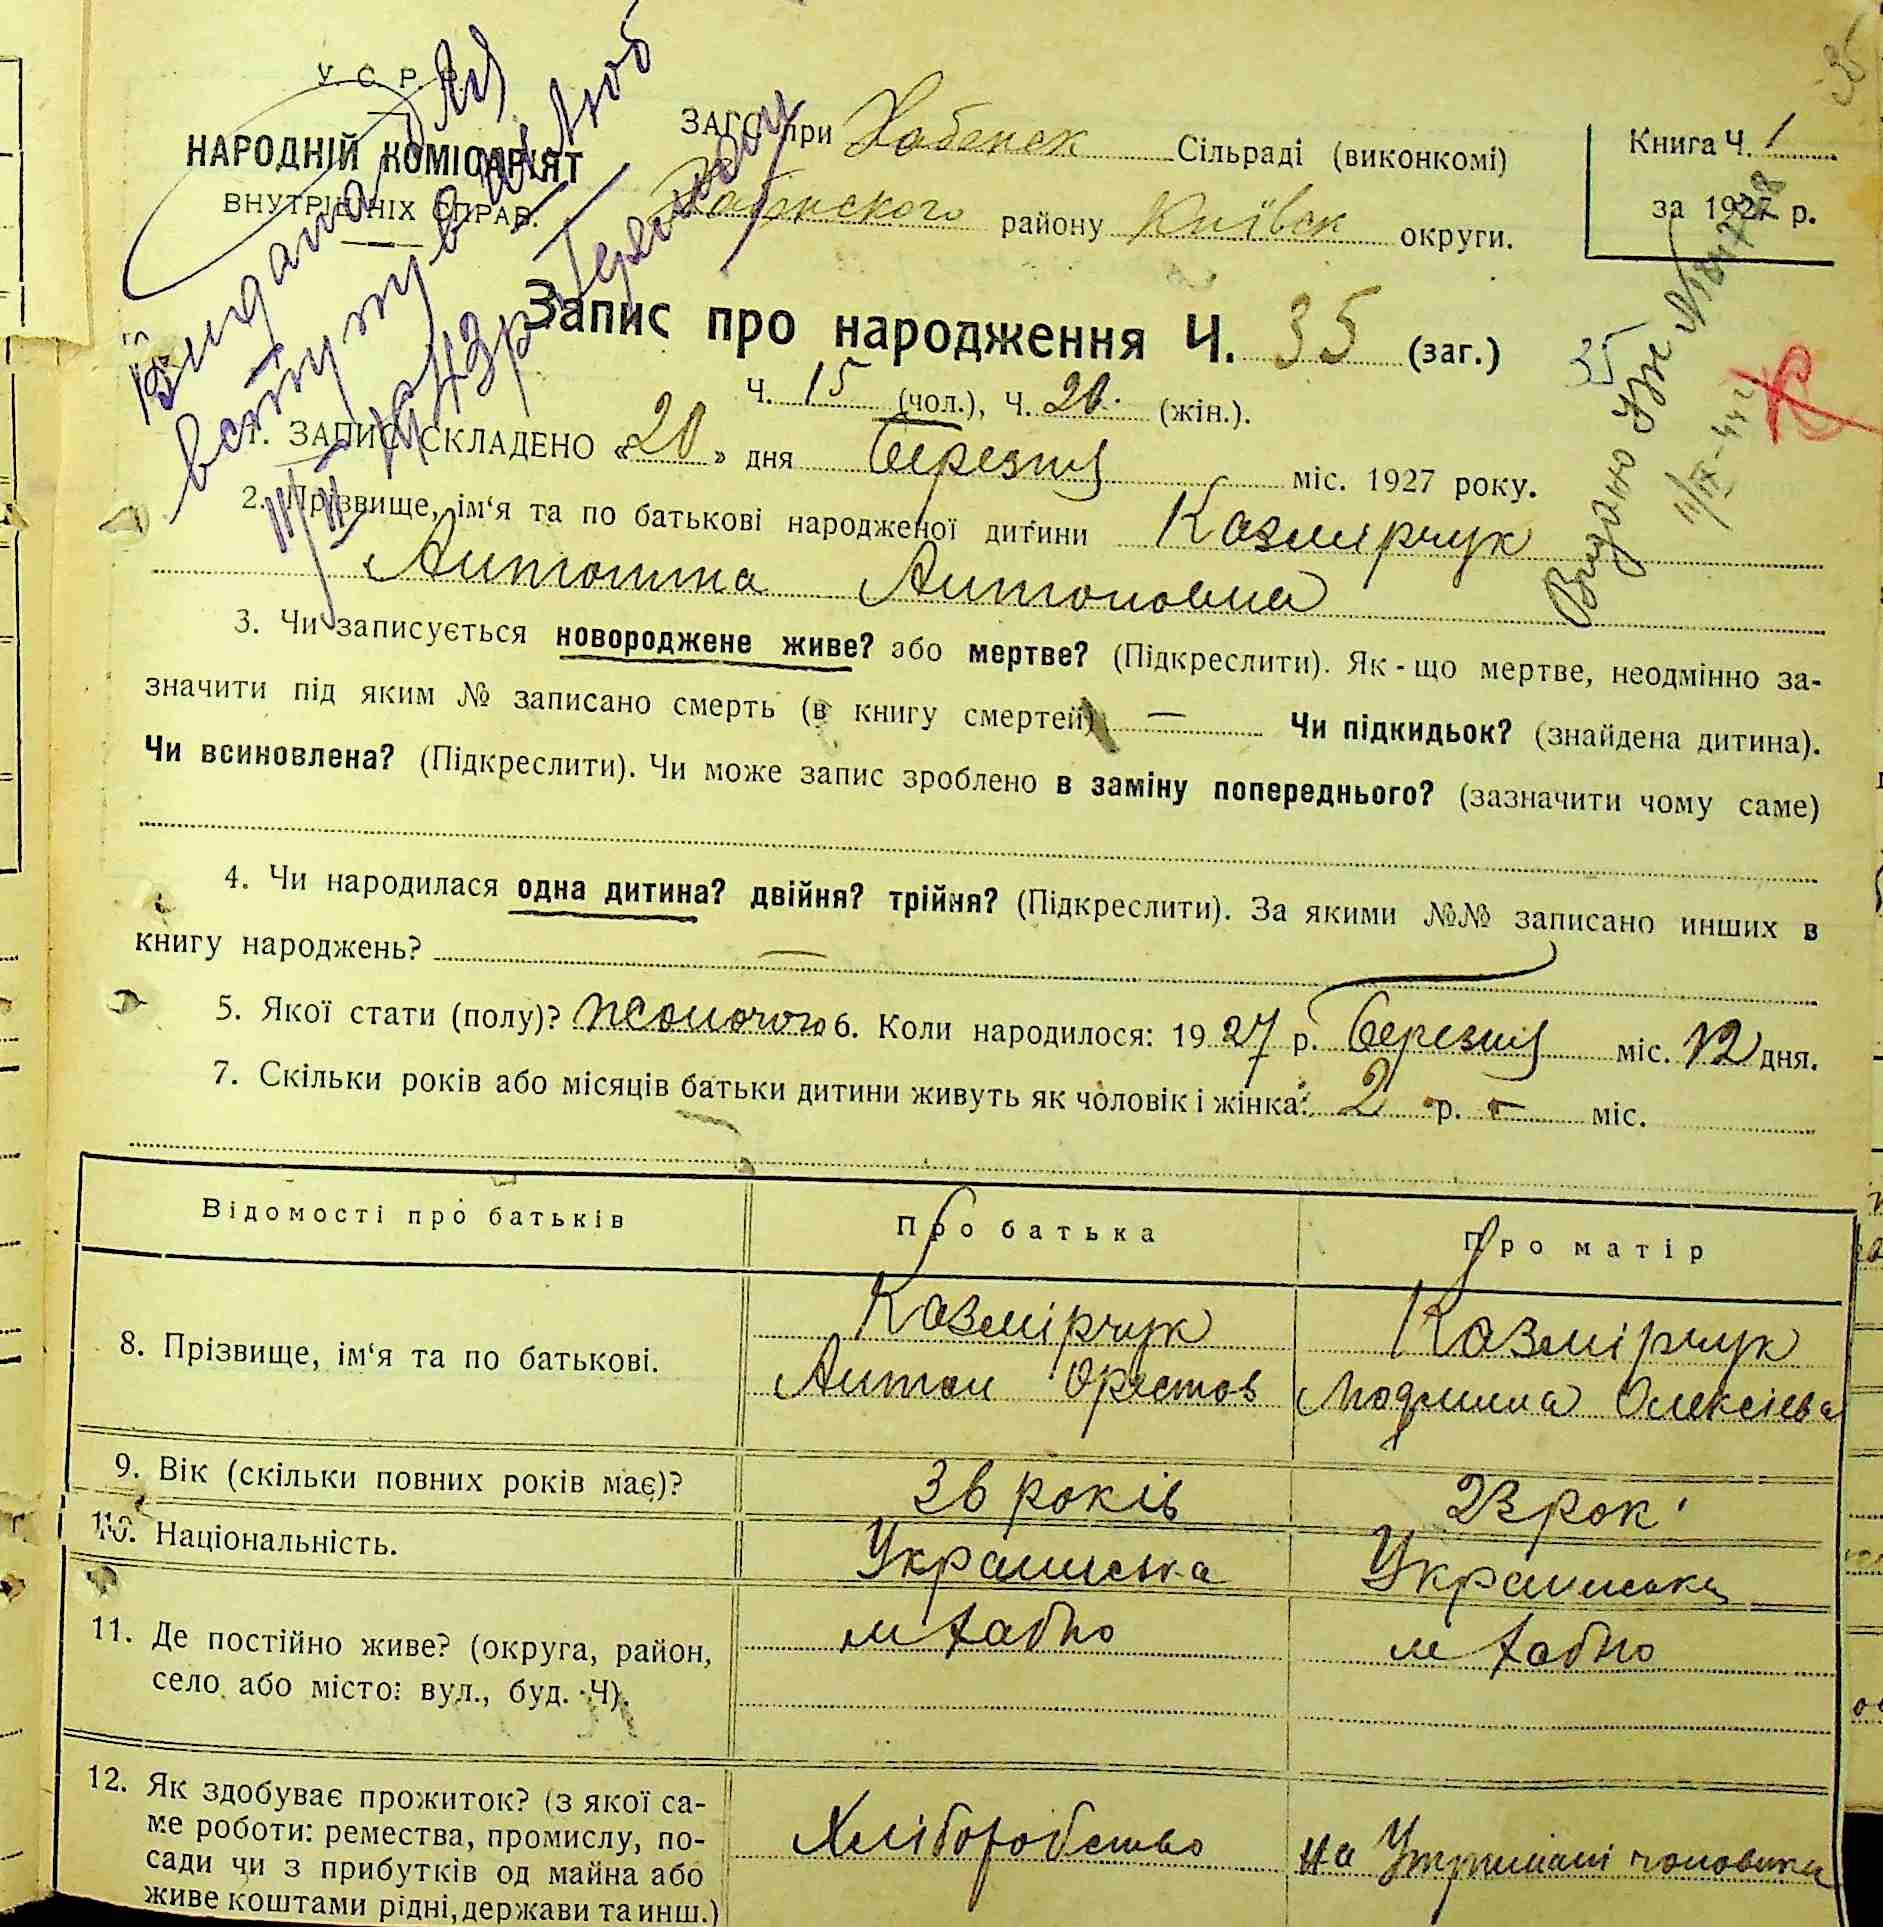 35
У. С. Р. Р.
НАРОДНІЙ КОМІСАРІЯТ
ВНУТРІШНІХ СПРАВ.
ЗАГС при Хабенск Сільраді (виконкомі)
Хабінского району Київск округи.
Книга Ч. 1
за 1927 р.
Видана для
вступу в шлюб
43 р.
Запис про народження Ч. 35 (заг.)
35
Ч. 15 (чол.), Ч. 20. (жін.).
Видано
1. ЗАПИС СКЛАДЕНО «20» дня Березня міс. 1927 року.
2. Прізвище, ім‘я та по батькові народженої дитини Казмірчук
Антоніна Антоновна
3. Чи записується новороджене живе? або мертве? (Підкреслити). Як-що мертве, неодмінно за-
значити під яким № записано смерть (в книгу смертей) — Чи підкидьок? (знайдена дитина).
Чи всиновлена? (Підкреслити). Чи може запис зроблено в заміну попереднього? (зазначити чому саме)
4. Чи народилася одна дитина? двійня? трійня? (Підкреслити). За якими №№ записано инших в
книгу народжень? —
5. Якої стати (полу)? жоночого 6. Коли народилося: 1927 р. Березня міс. 12 дня.
7. Скільки років або місяців батьки дитини живуть як чоловік і жінка: 2 р. — міс.
Відомості про батьків Про батька Про матір
8. Прізвище, ім‘я та по батькові.
Казмірчук Казмірчук
Антон Орестов Людмила Олексієва
9. Вік (скільки повних років має)? 36 років 23 рок
10. Національність. Українська Українська
11. Де постійно живе? (округа, район,
село або місто: вул., буд. Ч).
м Хабно м Хабно
12. Як здобуває прожиток? (з якої са-
ме роботи: ремества, промислу, по-
сади чи з прибутків од майна або
живе коштами рідні, держави та инш.)
Хліборобство на Утримані чоловіка